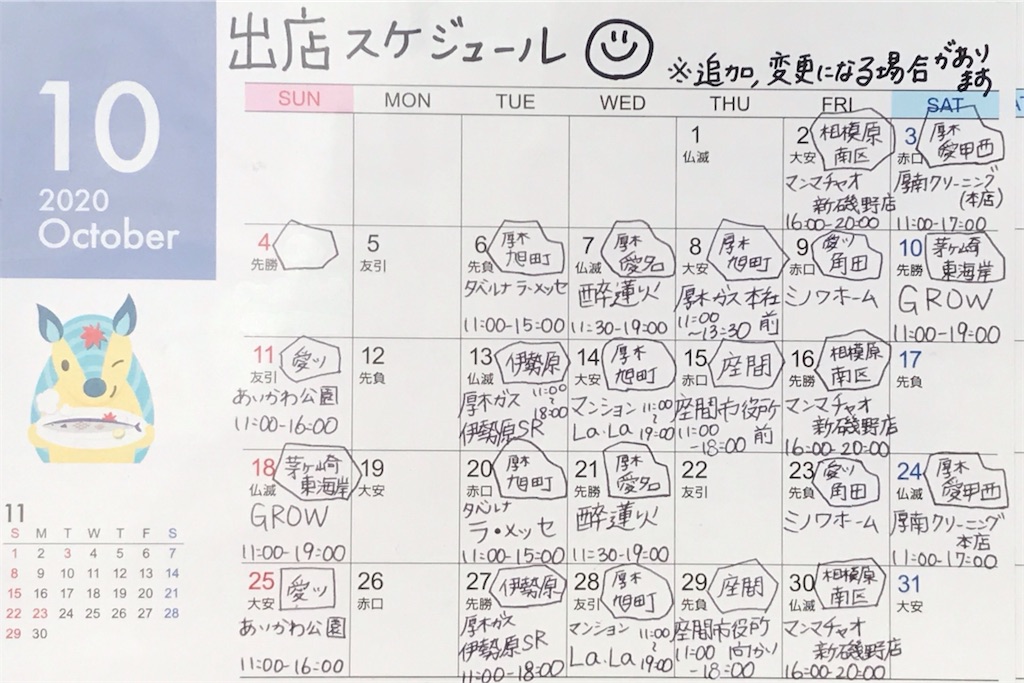 10
2020
October
出店スケジュール
※追加,変更になる場合があります
SUN MON TUE WED THU FRI SAT
1
仏滅
2
大安
相模原
南区
マンマチャオ
新磯野店
16:00-20:00
3
赤口
厚木
愛甲西
厚南クリーニング
(本店)
11:00-17:00
4
先勝
5
友引
6
先負
厚木
旭町
タベルナ ラ・メッセ
11:00-15:00
7
仏滅
厚木
愛名
酔蓮火
11:30-19:00
8
大安
厚木
旭町
厚木ガス本社
前
11:00
~13:30
9
赤口
愛川
角田
シノワホーム
10
先勝
茅ヶ崎
東海岸
GROW
11:00-19:00
11
友引
愛川
あいかわ公園
11:00-16:00
12
先負
13
仏滅
伊勢原
厚木ガス
伊勢原SR
11:00
~
18:00
14
大安
厚木
旭町
マンション
La.La
11:00
~
19:00
15
赤口
座間
座間市役所
前
11:00
-18:00
16
先勝
相模原
南区
マンマチャオ
新磯野店
16:00-20:00
17
先負
18
仏滅
茅ヶ崎
東海岸
GROW
11:00-19:00
19
大安
20
赤口
厚木
旭町
タベルナ
ラ・メッセ
11:00-15:00
21
先勝
厚木
愛名
酔蓮火
11:30-19:00
22
友引
23
先負
愛川
角田
シノワホーム
24
仏滅
厚木
愛甲西
厚南クリーニング
本店
11:00-17:00
25
大安
愛川
あいかわ公園
11:00-16:00
26
赤口
27
先勝
伊勢原
厚木ガス
伊勢原SR
11:00-18:00
28
友引
厚木
旭町
マンション
La.La
11:00
~
19:00
29
先負
座間
座間市役所
向かり
11:00
-18:00
30
仏滅
相模原
南区
マンマチャオ
新磯野店
16:00-20:00
31
大安
11
S M T W T F S
1 2 3 4 5 6 7
8 9 10 11 12 13 14
15 16 17 18 19 20 21
22 23 24 25 26 27 28
29 30